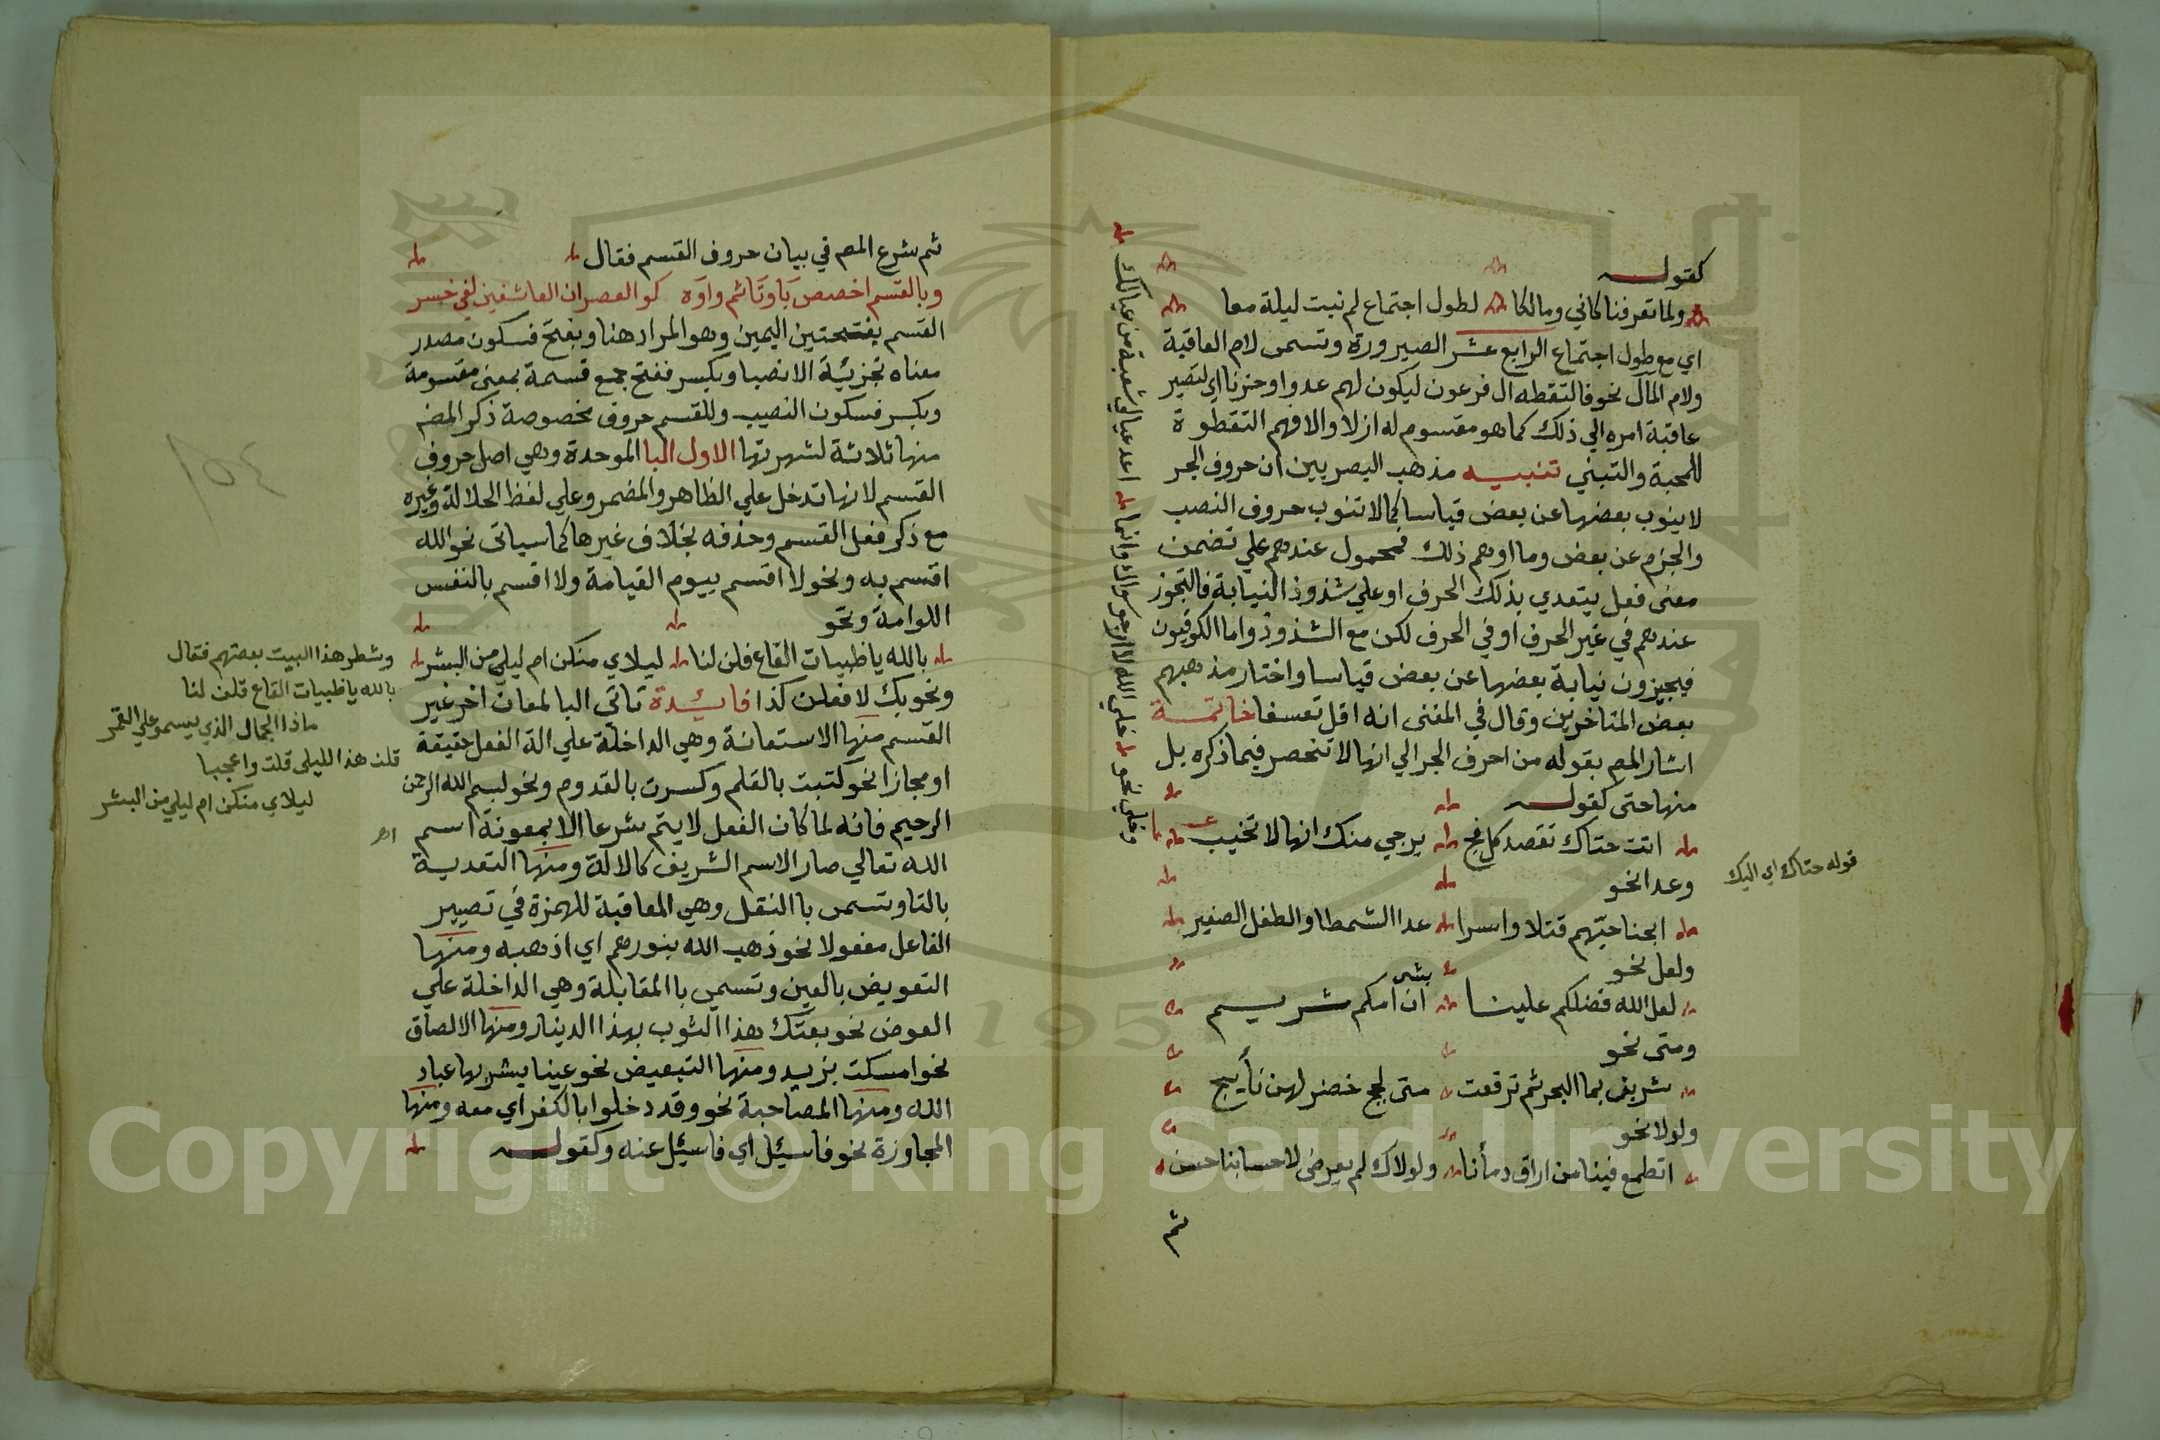 كقولـــه
ولما تفرفنا كاني ومالكا لطول اجتماع لم نبت ليلة معا
اي مع طول اجتماع الرابع عشر الصيرورة وتسمى لام العاقبة
ولام المآل نحو فالتقطه ال فرعون ليكون لهم عدوا وحزنا اي لتصير
عاقبة امره الي ذلك كما هو مقسوم له ازلا والا فهم التقطوة
للمحبة والتبني تنبيـه مذهب البصريين ان حروف الجر
لا ينوب بعضها عن بعض قياسا كما لا تنوب حروف النصب
والجزم عن بعض وما اوهم ذلك فمحمول عندهم علي تضمن
معنى فعل يتعدي بذلك الحرف او علي شذوذ النيابة فالتجوز
عندهم في غير الحرف او في الحرف لكن مع الشذوذ واما الكوفيون
فيجيزون نيابة بعضها عن بعض قياسا واختار مذهبهم
بعض المتاخرين وقال في المغنى انه اقل تعسفا خاتمـة
اشار المص بقوله من احرف الجر الي انها لا تنحصر فيما ذكره بل
منها حتى كقولـــه
اتت حتاك تقصد كل فج يرجي منك انها لا تخيب
وعدا نحو
ابحنا حيهم قتلا واسرا عدا الشمطا والطفل الصغير
ولعل نحو
لعل الله فضلكم علينـا بشى ان امكم شريـم
ومتى نحو
شربن بما البحر ثم ترفعت متى لجج خضر لهن نأييج
ولولا نحو
اتطمع فينا من اراق دمأنا ولولاك لم يعرض لاحسابنا حسن
ثم
وخلي نحو خلي الله لا ارجو سواك وانما اعد عيالي شعبة من عيالك
قوله حتاك اي اليك
ثم شرع المص في بيان حروف القسم فقال
وبالقسم اخصص بَا وتَا ثم واوَه كو العصر ان العاشقين لفي خسر
القسم بفتحتين اليمين وهو المراد هنا وبفتح فسكون مصدر
معناه تجزيئة الانصبا وبكسر ففتح جمع قسمة بمعنى مقسومة
وبكسر فسكون النصيب وللقسم حروف مخصوصة ذكر المصَ
منها ثلاثة لشهرتها الاول البا الموحدة وهي اصل حروف
القسم لانها تدخل علي الظاهر والمضمر وعلي لفظ الجلالة وغيره
مع ذكر فعل القسم وحذفه بخلاف غيرها كما سياتي نحو الله
اقسم به ونحو لا اقسم بيوم القيامة ولا اقسم بالنفس
اللوامة ونحو
بالله يا ظبيات القاع قلن لنا ليلاي منكن ام ليلى من البشر
ونحو بك لافعلن كذا فايـدة تاتى البا لمعان اخر غير
القسم منها الاستعانة وهي الداخلة علي الة الفعل حقيقة
او مجازا نحو كتبت بالقلم وكسرت بالقدوم ونحو بسم الله الرحمن
الرحيم فانه لما كان الفعل لا يتم شرعا الا بمعونة اسم
الله تعالي صار الاسم الشريف كالالة ومنها التعدية
بالتا وتسمى با النقل وهي المعاقبة للهمزة في تصيير
الفاعل مفعولا نحو ذهب الله بنورهم اي اذهبه ومنها
التعويض بالعين وتسمى با المقابلة وهي الداخلة علي
العوض نحو بعتك هذا الثوب بهذا الدينار ومنها الالصاق
نحو امسكت بزيد ومنها التبعيض نحو عينا يشرب بها عباد
الله ومنها المصاحبة نحو وقد دخلوا بالكفر اي معه ومنها
المجاوزة نحو فاسيئل اي فاسيئل عنه وكقولـــه
وشطر هذا البيت بعضهم فقال
بالله يا ظبيات القاع قلن لنا
ماذا الجمال الذي يسمو علي القمر
قلن هذا لليلى قلت واعجبا
ليلاي منكن ام ليلي من البشر
اهـ
Copyright © King Saud University
195